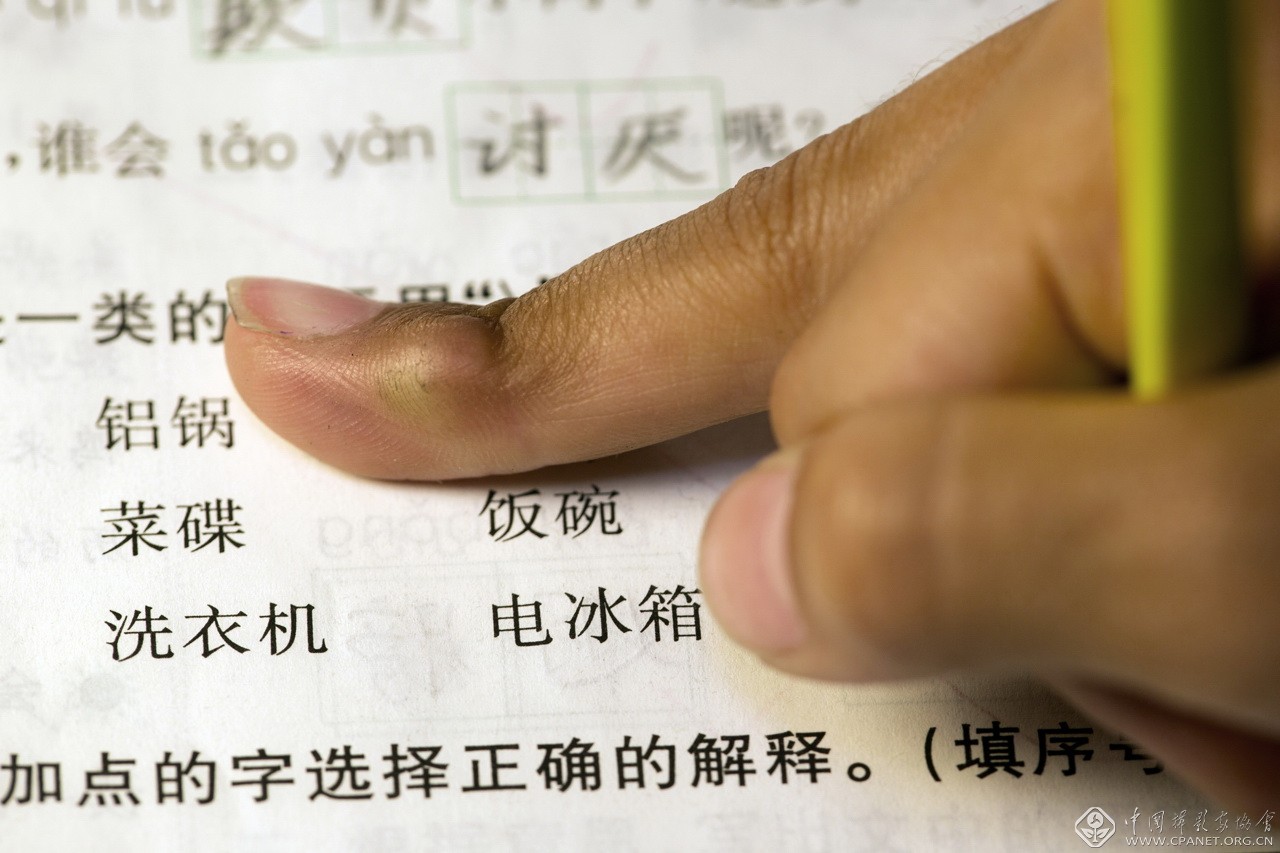 ,谁会 tǎo yàn 讨厌 呢?
一类的
铝锅
菜碟 饭碗
洗衣机 电冰箱
加点的字选择正确的解释。(填序号
中国摄影家协会
WWW.CPANET.ORG.CN